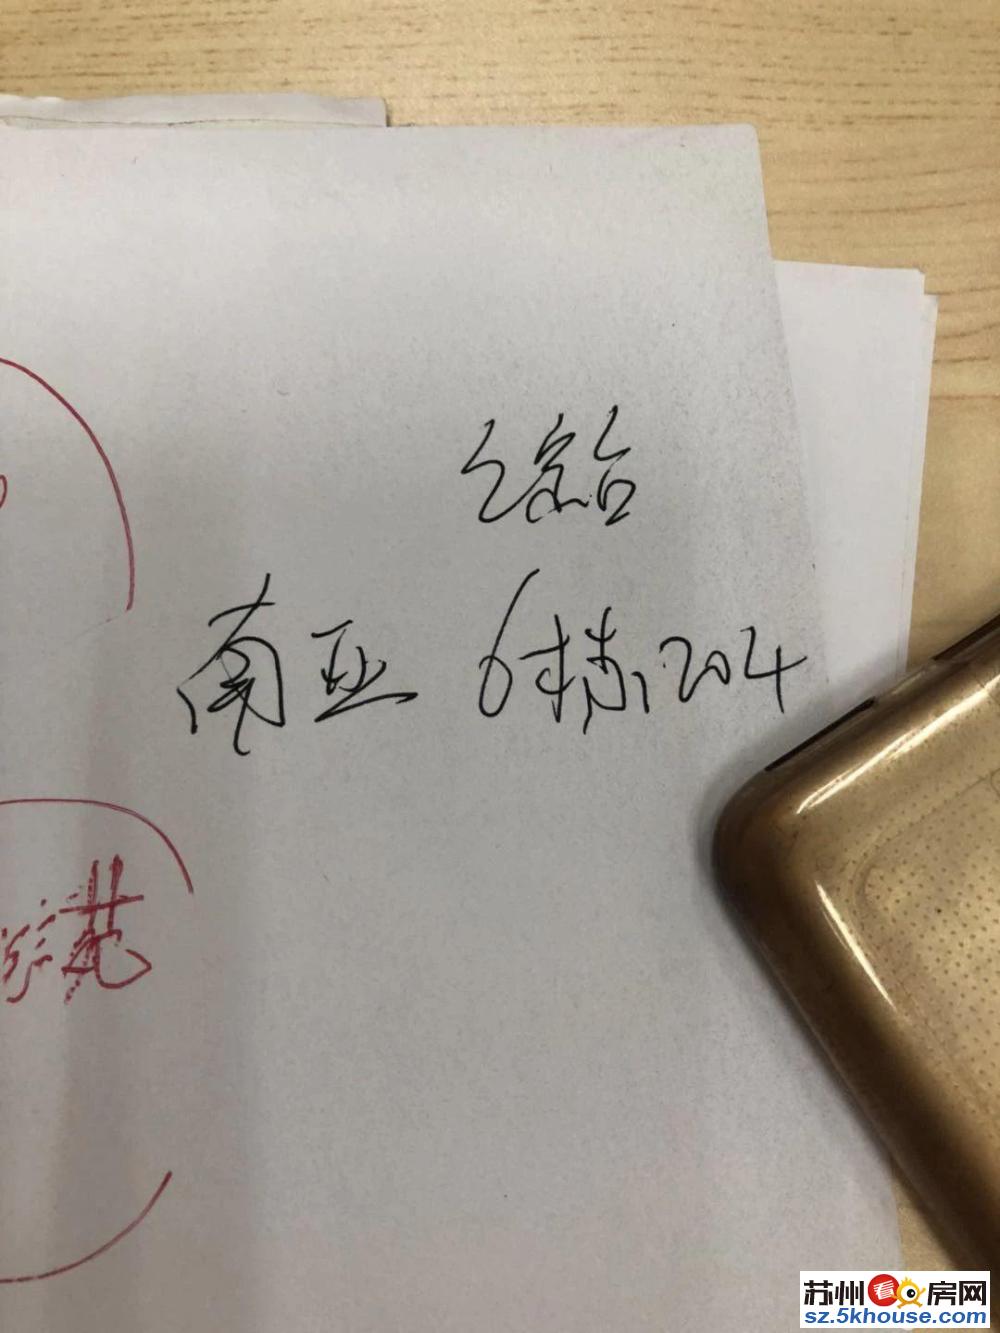 南亚 6栋1204
苑
苏州看房网
sz.5khouse.com